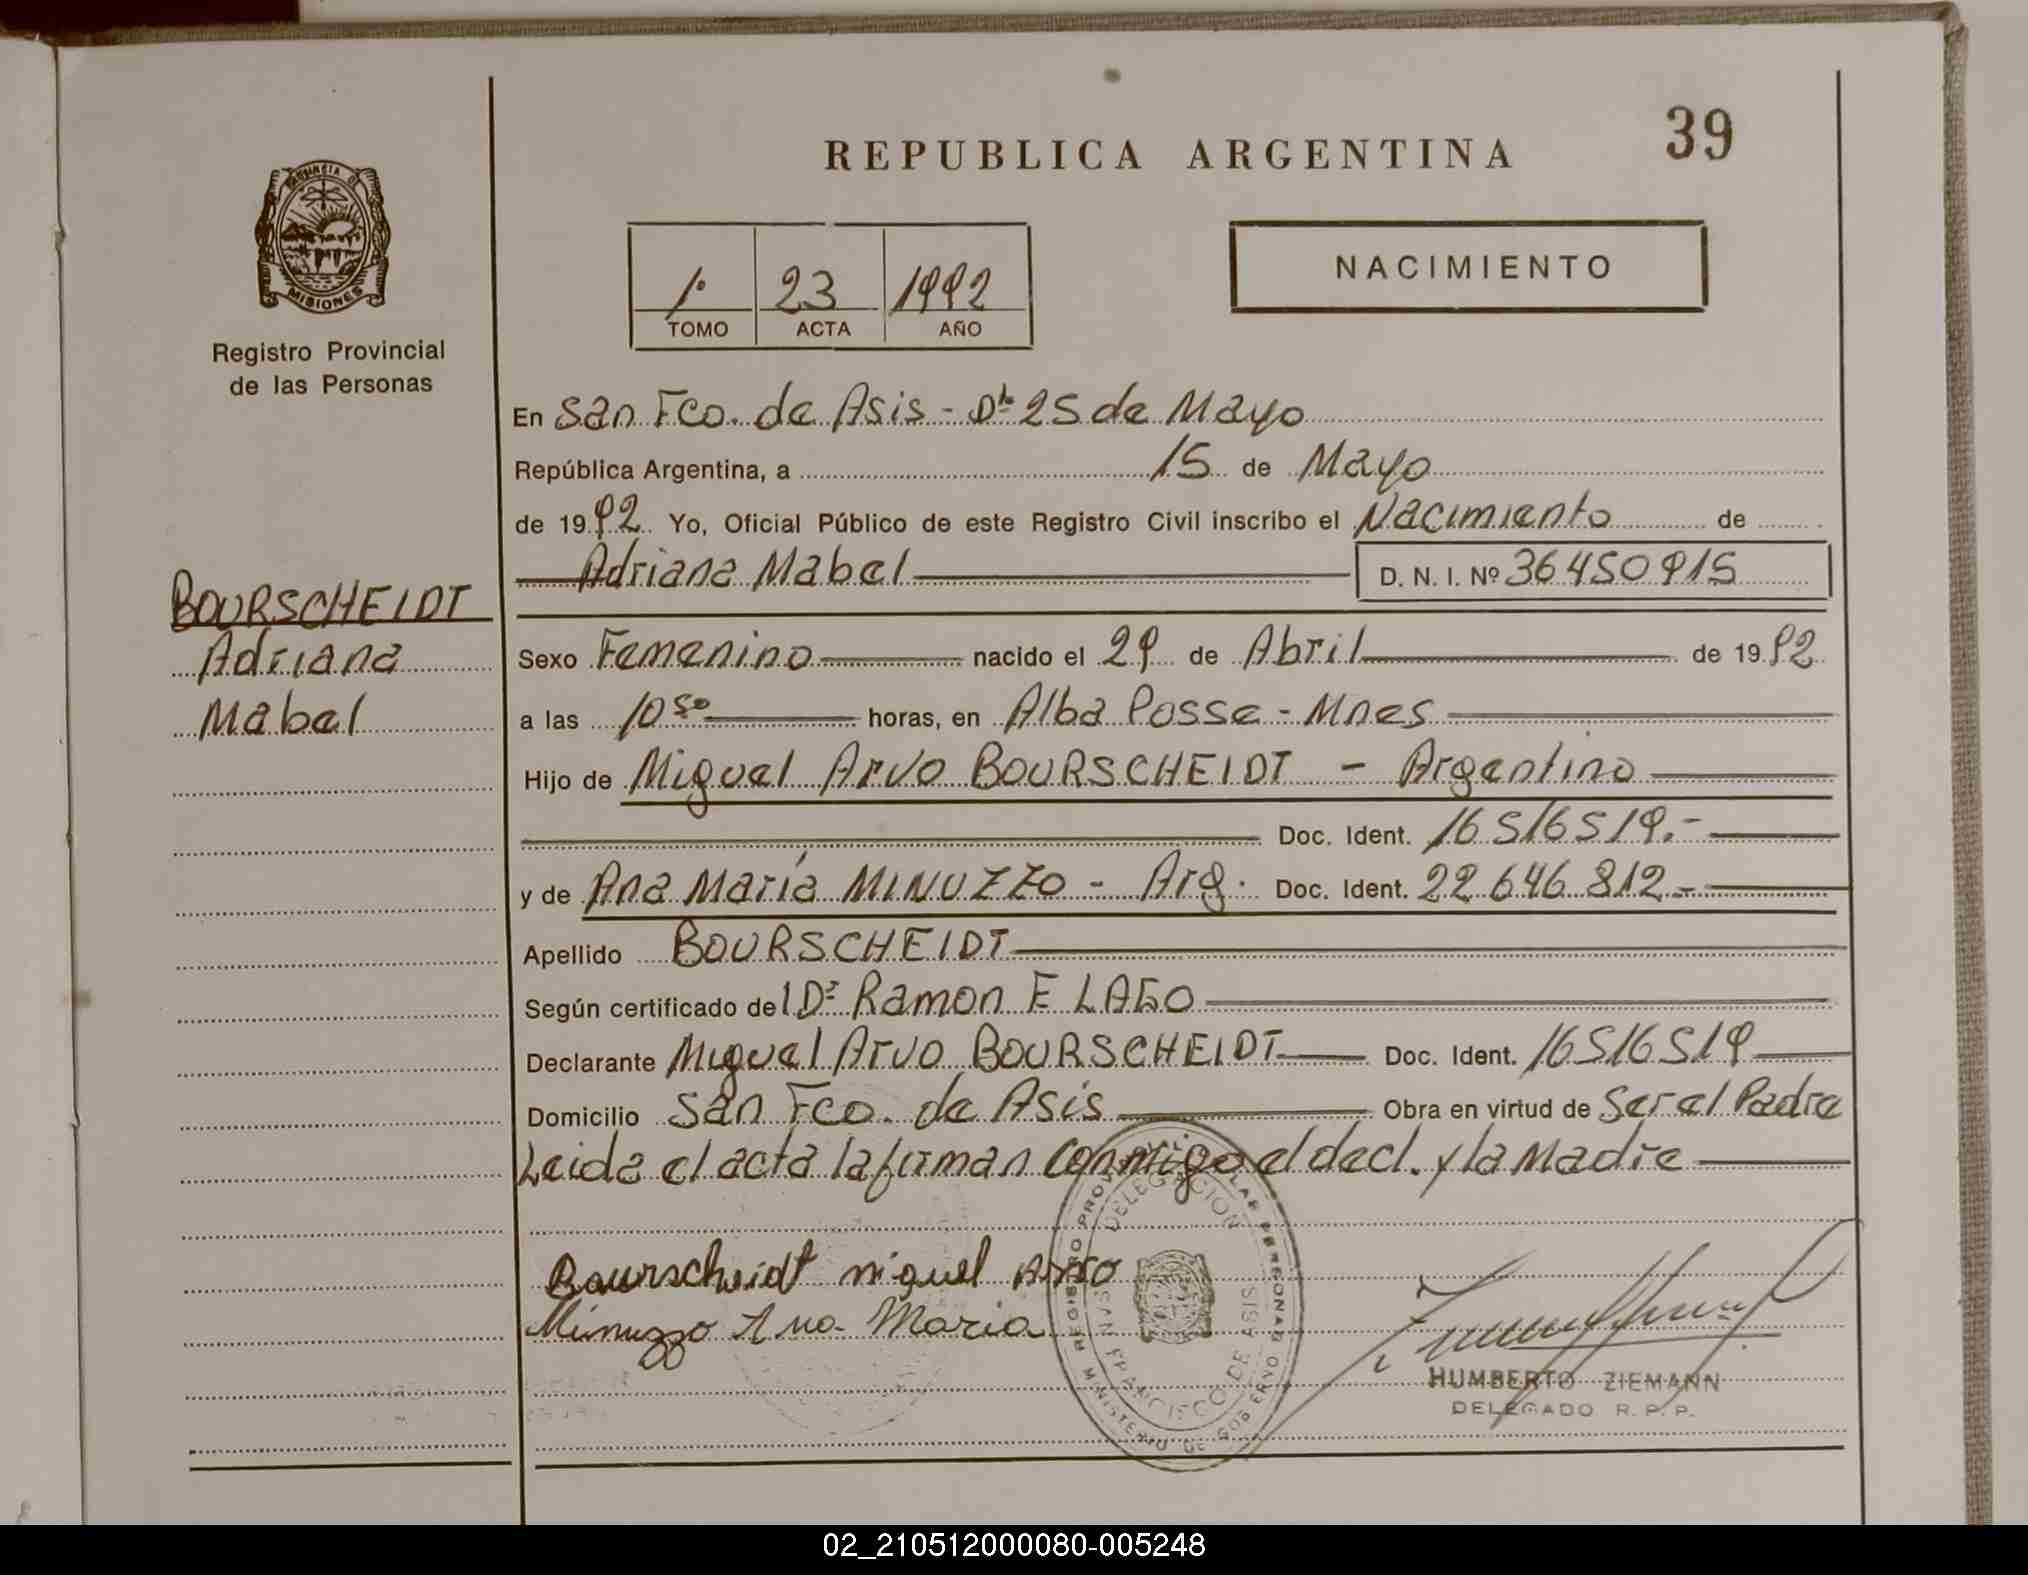 REPUBLICA ARGENTINA
39
PROVINCIA DE
MISIONES
Registro Provincial
de las Personas
1º 23 1992
TOMO ACTA AÑO
NACIMIENTO
En San Fco. de Asis - Dto 25 de Mayo
República Argentina, a 15 de Mayo
de 1992 Yo, Oficial Público de este Registro Civil inscribo el Nacimiento de
Adriana Mabel D. N. I. Nº 36450915
BOURSCHEIDT
Adriana
Mabel
Sexo Femenino nacido el 29 de Abril de 1992
a las 10 50 horas, en Alba Posse - Mnes
Hijo de Miguel Arvo BOURSCHEIDT - Argentino
Doc. Ident. 16516519.-
y de Ana María MINUZZO - Arg. Doc. Ident. 22646812.-
Apellido BOURSCHEIDT
Según certificado del Dr Ramon E LAGO
Declarante Miguel Arvo BOURSCHEIDT Doc. Ident. 16516519
Domicilio San Fco. de Asis Obra en virtud de Ser el Padre
Leida el acta la firman conmigo el decl. y la Madre
Bourscheidt miguel Arvo
Minuzzo Ana Maria
REGISTRO PROVINCIAL DE LAS PERSONAS
DELEGACION
SAN FRANCISCO DE ASIS
MINISTERIO DE GOBIERNO
HUMBERTO ZIEMANN
DELEGADO R. P. P.
02_210512000080-005248